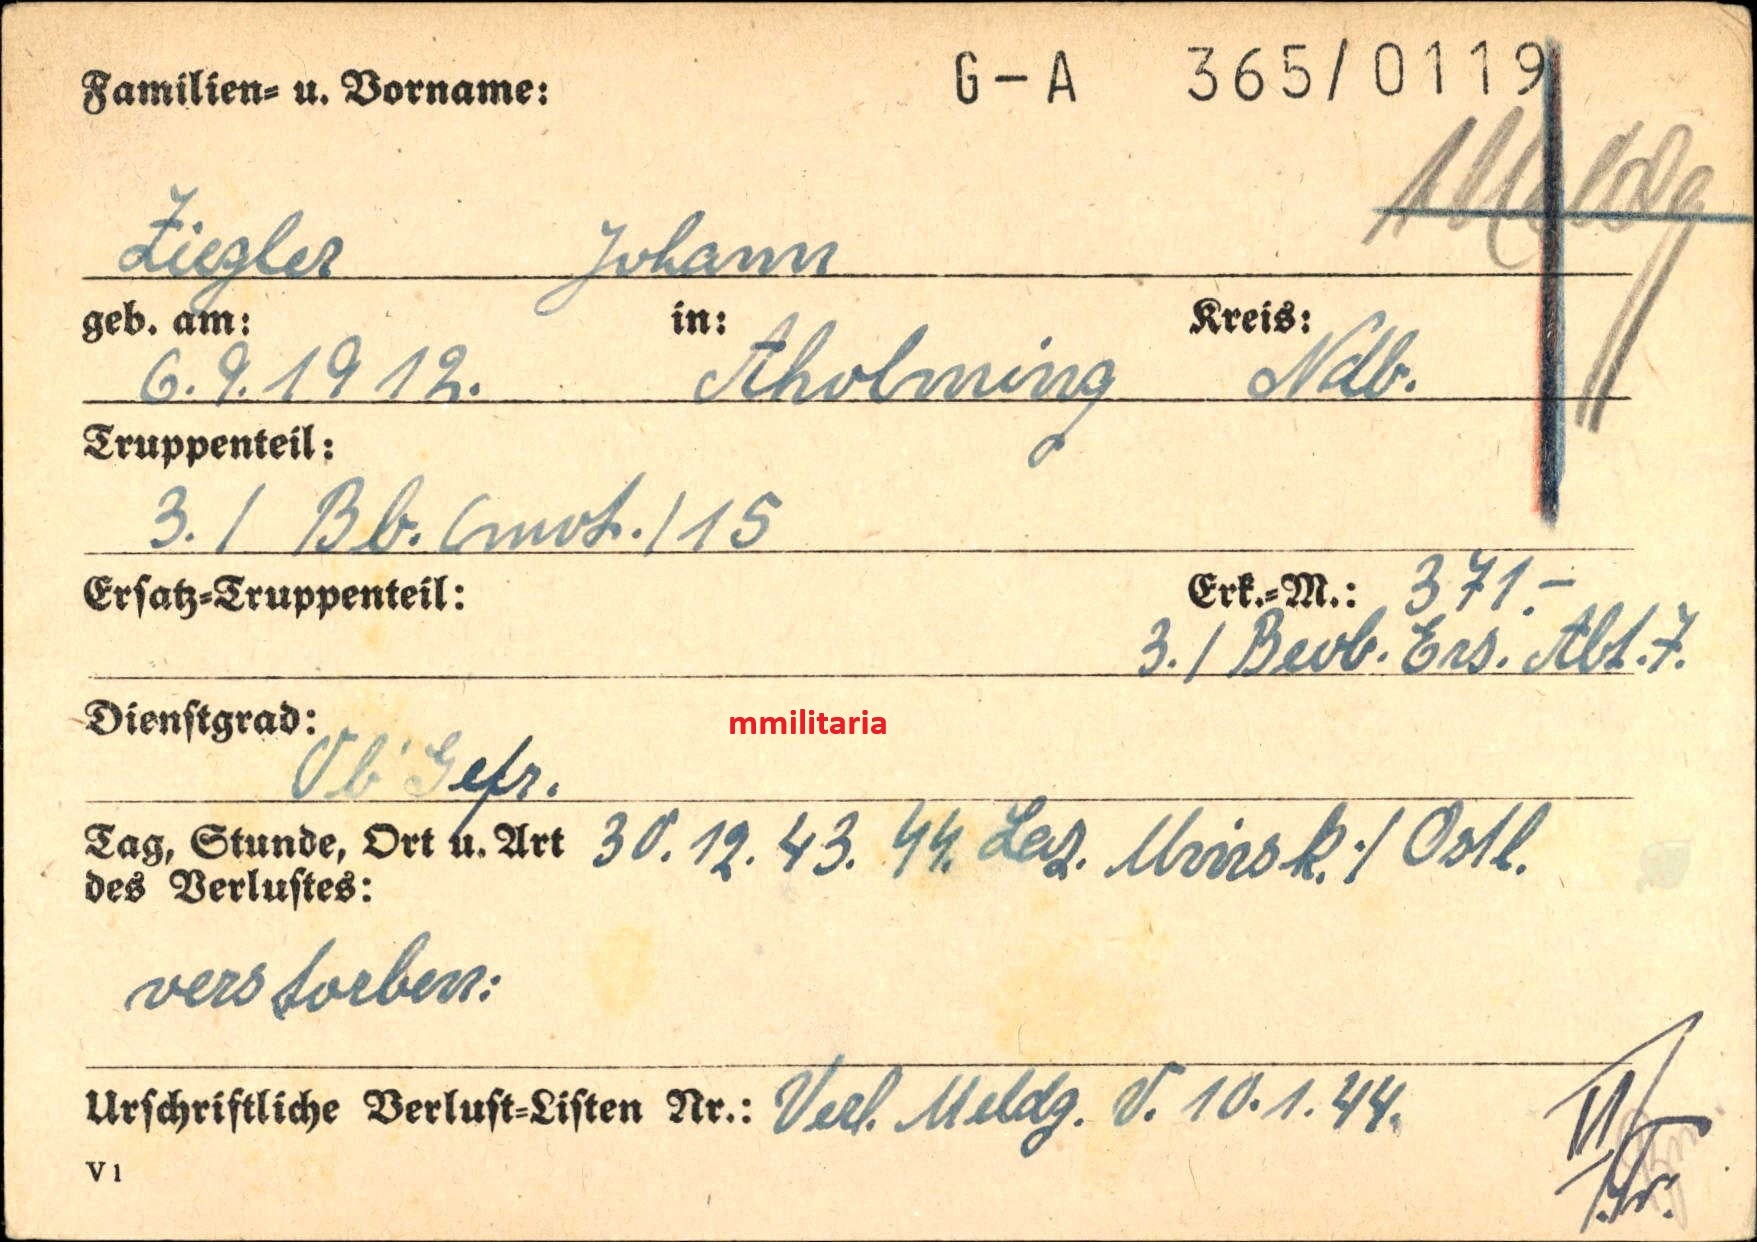 Familien- u. Vorname: G-A 365/0119
Meldg
Ziegler Johann
geb. am: in: Kreis:
6.9.1912. Aholming Ndb.
Truppenteil:
3./ Bb. (mot./15
Ersatz-Truppenteil: Erk.-M.: 371.-
3./ Beob. Ers. Abt. 7.
Dienstgrad:
mmilitaria
Ob' Gefr.
Tag, Stunde, Ort u. Art 30. 12. 43. 44. Laz. Minsk:/ Ostl.
des Verlustes:
verstorben:
Urschriftliche Verlust-Listen Nr.: Verl. Meldg. v. 10.1.44.
V1